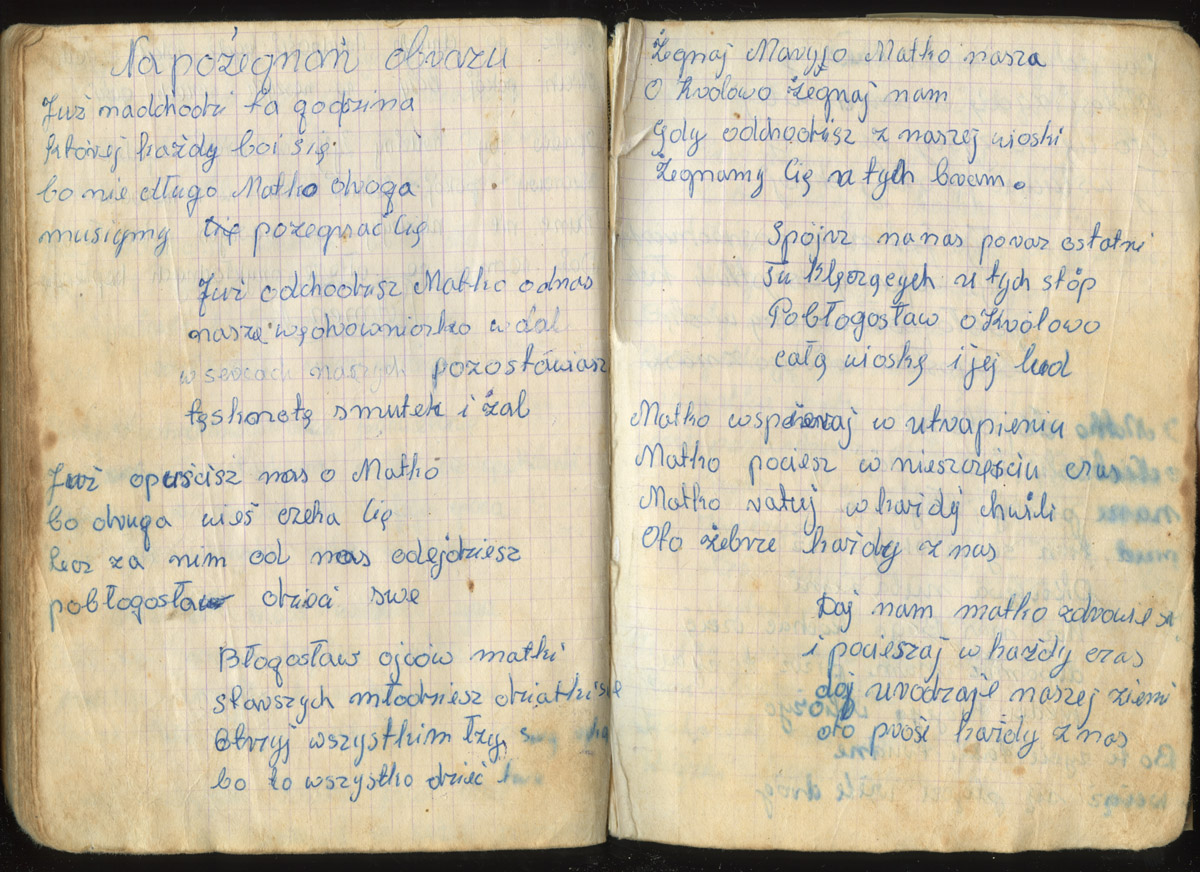 Na pożegnań obrazu
Już nadchodzi ta godzina
której każdy boi się.
bo nie długo Matko droga
musiymy pożegnać Cię
Już odchodzisz Matko odnas
nasza wędrowniczko w dal
w sercach naszych pozostawiasz
tęsknotę smutek i żal
Już opuścisz nas o Matko
bo druga wieś czeka Cię
lecz za nim od nas odejdziesz
pobłogosław dzieci swe
Błogosław ojców matki
starszych młodzież dziatki swe
Otrzyj wszystkim łzy
bo to wszystko dzieć
Żegnaj Maryjo Matko nasza
O Królowo Żegnaj nam
Gdy odchodzisz z naszej wioski
Żegnamy Cię u tych bram.
Spójrz nanas poraz ostatni
Tu klęczących u tych stóp
Pobłogosław o Królowo
całą wioskę i jej lud
Matko wspieraj w utrapieniu
Matko pociesz w nieszczęściu czas
Matko ratuj w każdy chwili
Oto żebrze każdy z nas
Daj nam matko zdrowie
i pocieszaj w każdy czas
daj urodzaje naszej ziemi
oto prosi każdy z nas